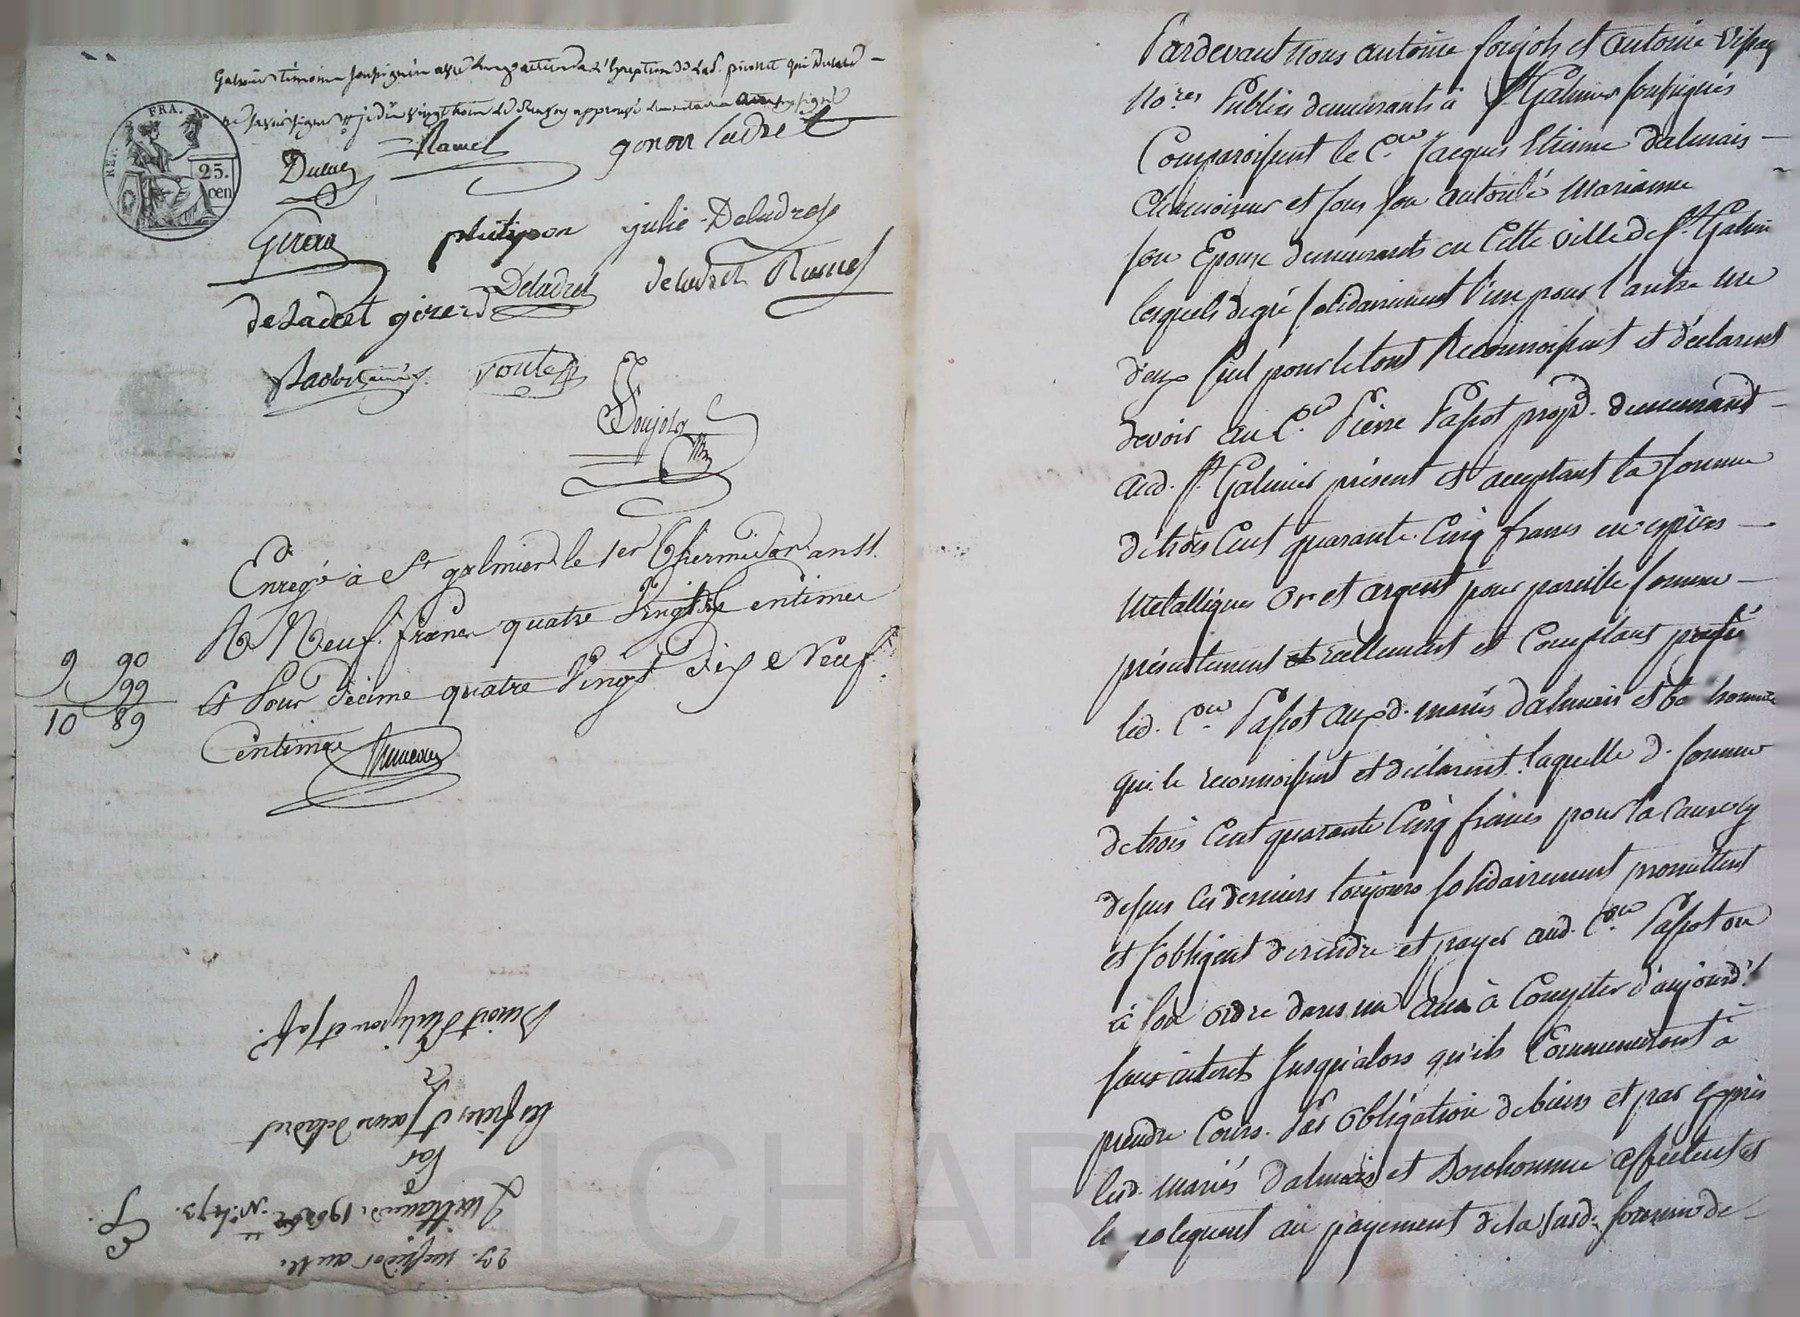 Galmier témoins soussignés avec les parties à l'exception de lad. pionet qui déclaré
ne savoir signer
REP. FRA.
25.
cen
Duluc Ramel gonon ladret
Girard philipon julie Deladret
Deladret deladret Ramel
deladret girerd
Voute
Soujols
Enregé à St galmier le 1er Thermidor an 11.
R Neuf francs quatre Vingt dix centimes
9 90
99
10 89
et Pour décime quatre Vingt dix Neuf
Centimes
29. messidor an 11.
Quittance de 1962 N° 473.
Par
Les frères et sœurs deladret
à
Benoit Philipon et sa f.
Pardevant nous antoine soujols et antoine
No.res Publics demeurants à St Galmier soussignés
Comparoissent le C.en Jacques Etienne dalmais
Chamoiseur et sous son autorité Marianne
son Epouse demeurants en Cette ville de St Galmier
lesquels de gré solidairement l'un pour l'autre un
d'eux seul pour le tout Reconnoissent et déclarent
devoir au C.en Pierre Passot propre. demeurant
aud. St Galmier présent et acceptant la somme
de trois Cent quarante Cinq francs en espèces
Métalliques Or et argent pour pareille somme
présentement et réellement et Comptant presté
led. C.en Passot auxd. mariés dalmais et bo homme
qui le reconnoissent et déclarent. laquelle d. somme
de trois Cent quarante Cinq francs pour la Cause cy
dessus Ces derniers toujours solidairement promettent
et s'obligent de rendre et payer aud. C.en Passot ou
à son ordre dans un an à Compter d'aujourd'
sans interets Jusqu'alors qu'ils Commenceront à
prendre Cours. Par Obligation de biens et par Exprès
lesd. Mariés dalmais et Bonhomme affectent et
le relequent au payement de la susd. somme de
Pascal CHARTON